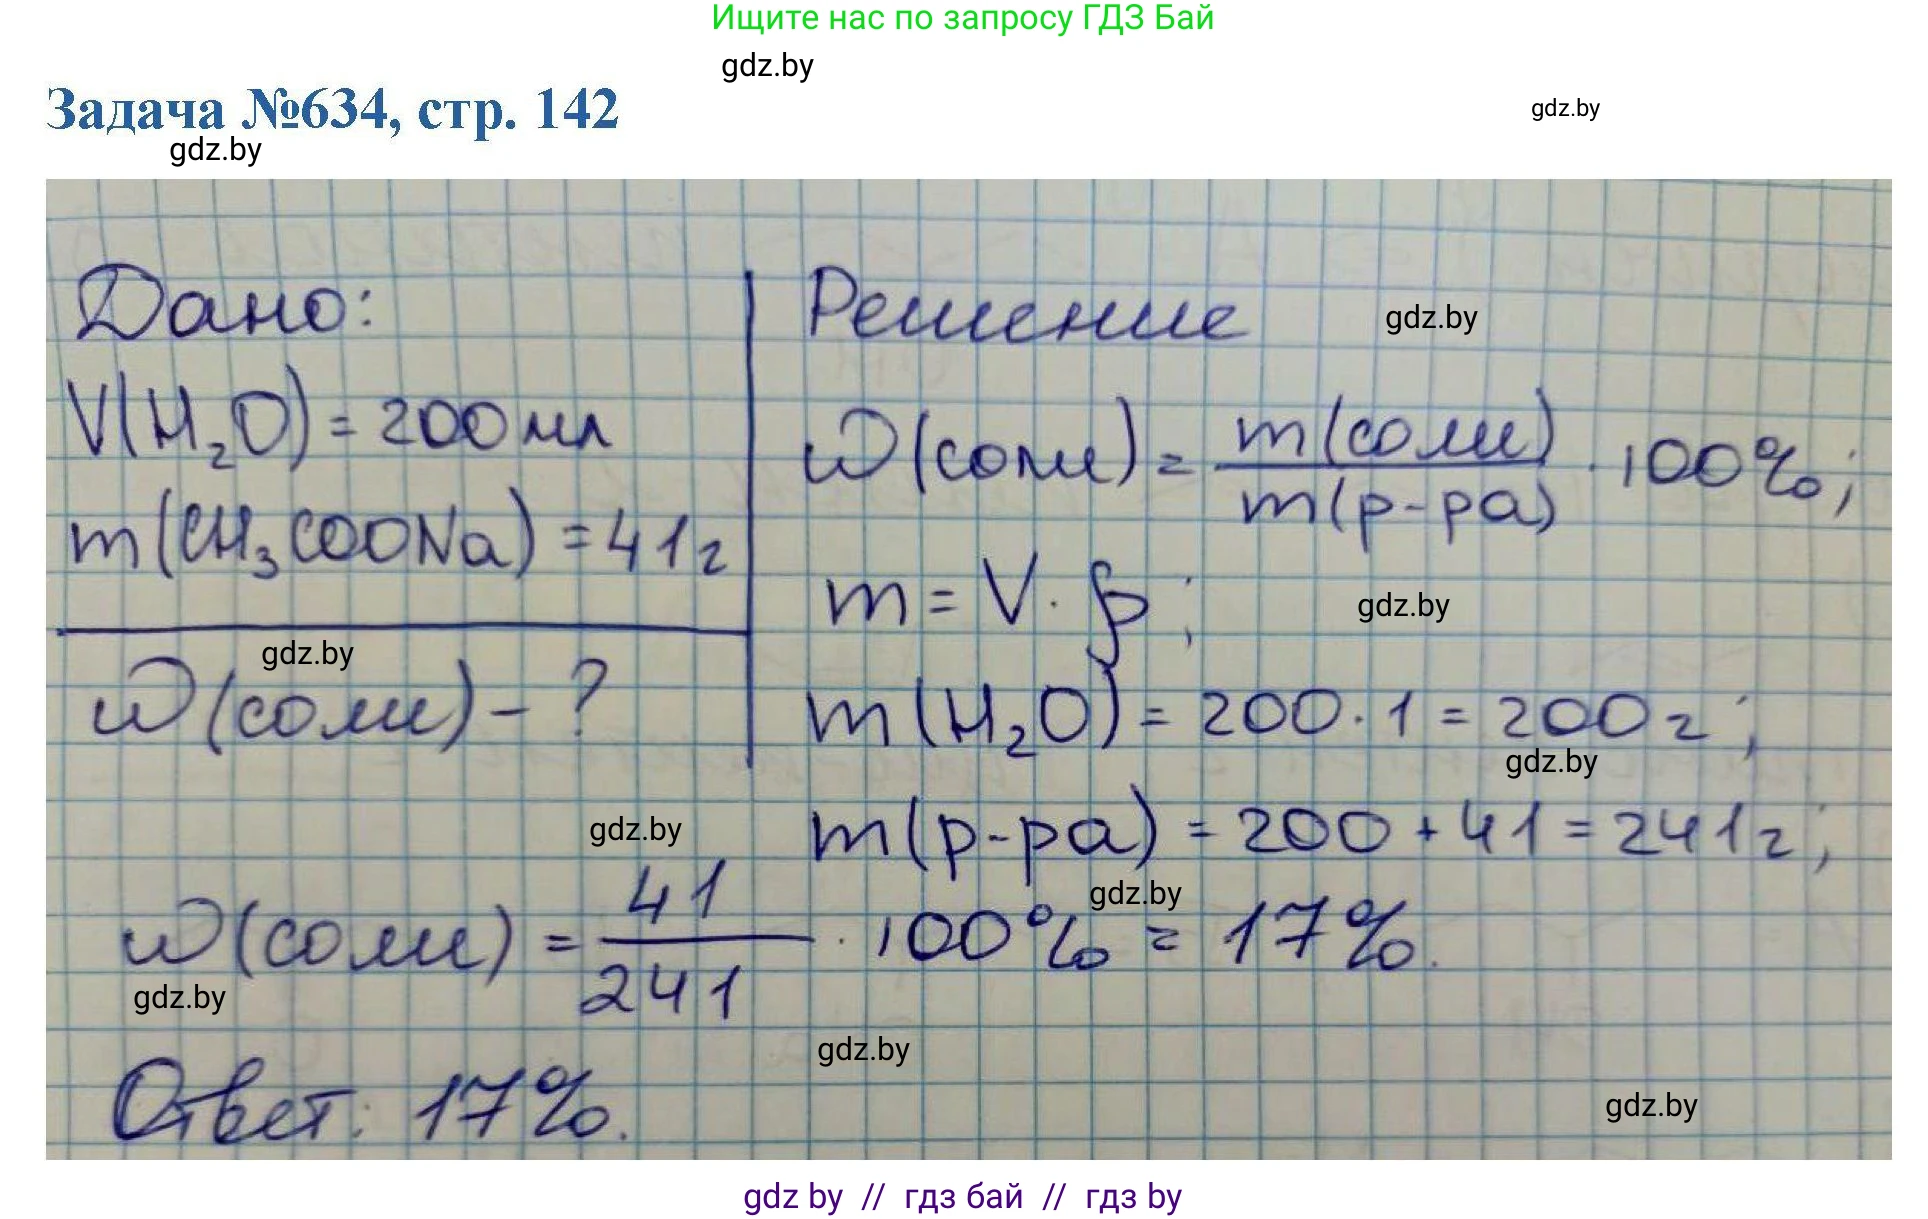 Ищите нас по запросу ГДЗ Бай
gdz.by
Задача №634, стр. 142
gdz.by
gdz.by
Дано:
V(H₂O) = 200 мл
m(CH₃COONa) = 41 г
gdz.by
ω(соли) - ?
Решение
gdz.by
ω(соли) = m(соли) / m(р-ра) · 100%;
m = V · ρ;
gdz.by
m(H₂O) = 200 · 1 = 200 г;
gdz.by
gdz.by
m(р-ра) = 200 + 41 = 241 г;
gdz.by
ω(соли) = 41 / 241 · 100% = 17%.
gdz.by
gdz.by
Ответ: 17%.
gdz.by
gdz by // гдз бай // гдз by